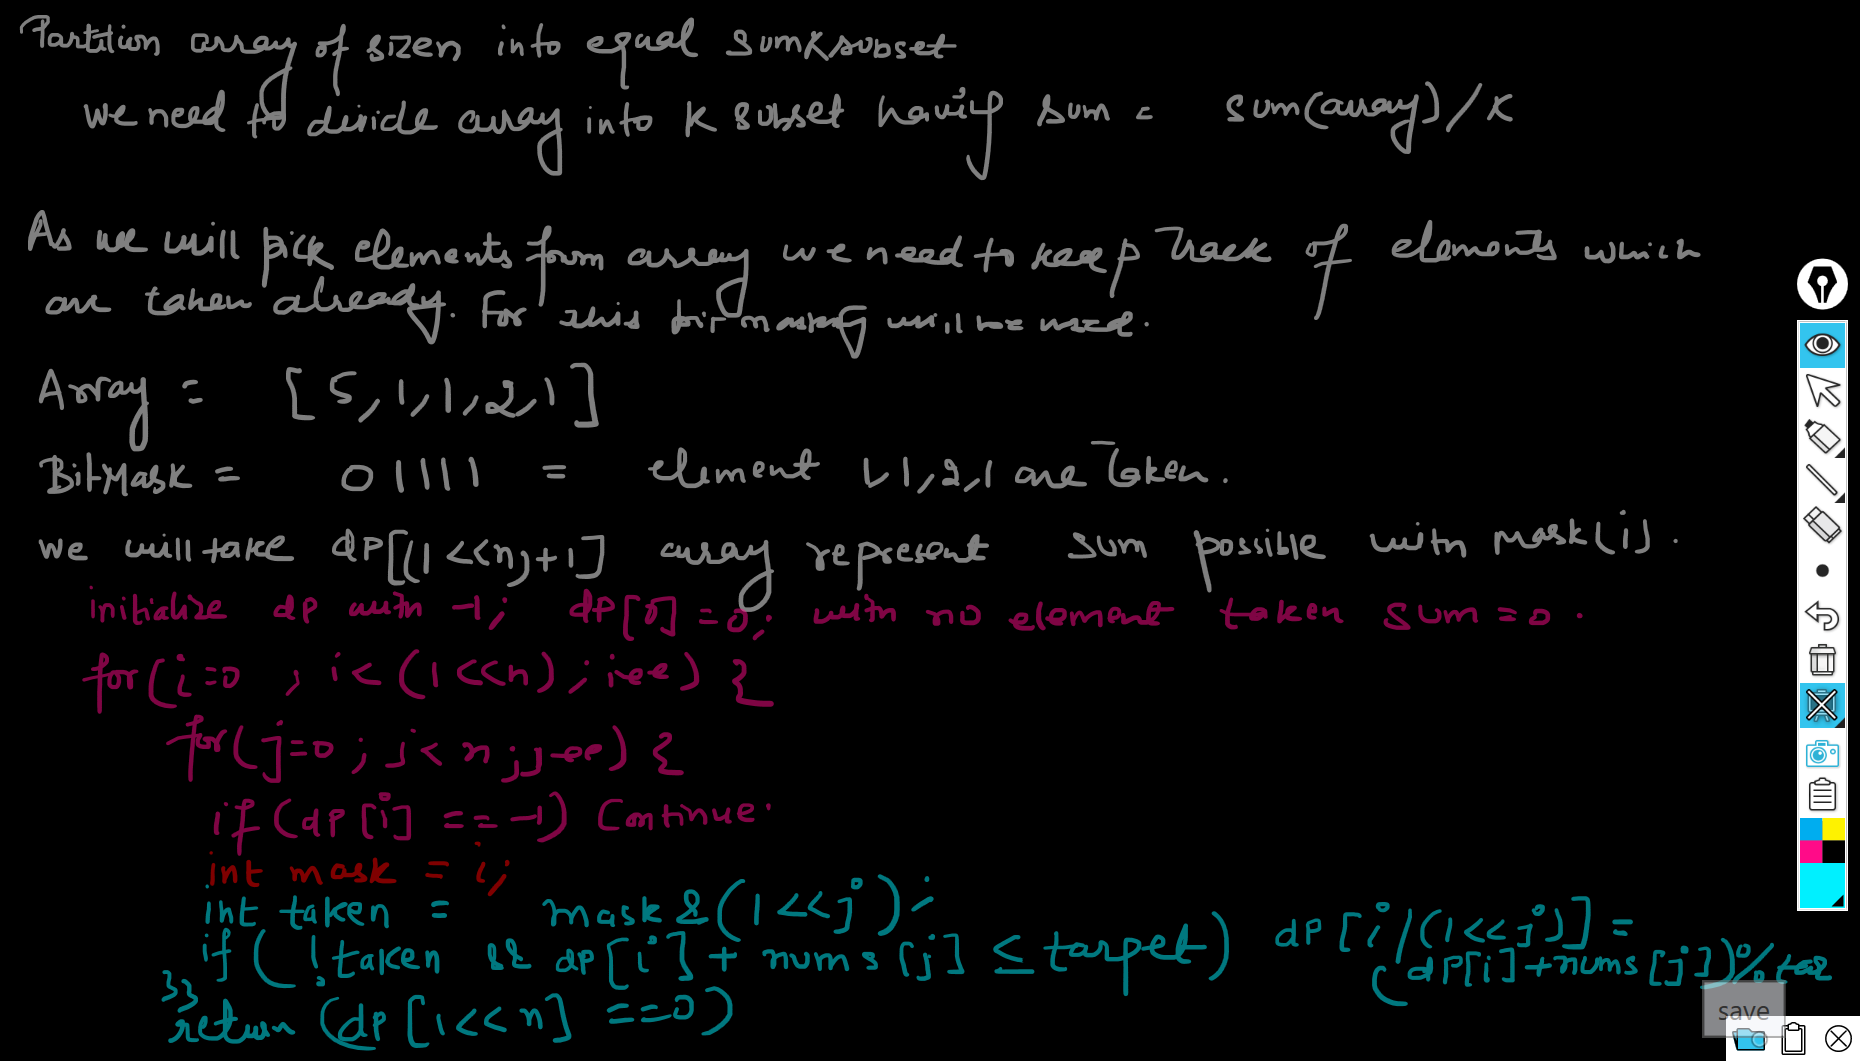 Partition array of size n into equal sum K subset
we need to divide array into K subset having sum = sum(array)/K
As we will pick elements from array we need to keep track of elements which
are taken already. For this bit masking will be used.
Array = [5,1,1,2,1]
BitMask = 01111 = element 1,1,2,1 are Taken.
we will take dp[(1<<n)+1] array represent sum possible with mask(i).
initialize dp with -1; dp[0]=0; with no element taken sum=0.
for(i=0 ; i<(1<<n); i++) {
for(j=0; j<n; j++) {
if (dp[i] == -1) continue.
int mask = i;
int taken = mask&(1<<j);
if (!taken && dp[i]+nums[j] ≤ target) dp[i/(1<<j)] =
(dp[i]+nums[j])%tar
}}
return (dp[1<<n] ==0)
save